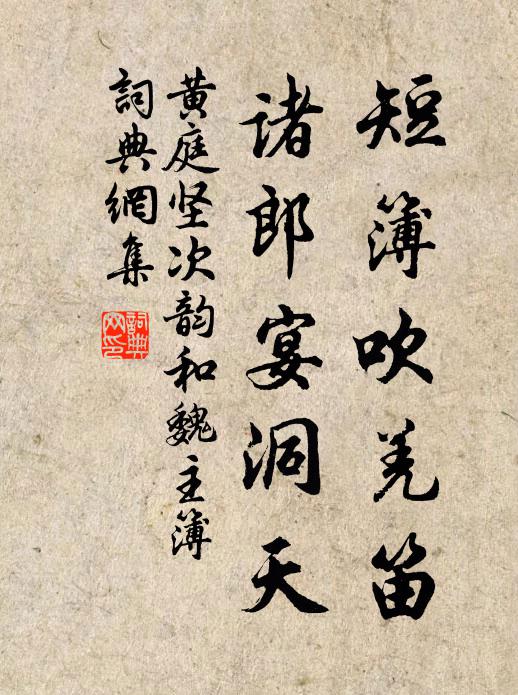 短簿吹羌笛
诸郎宴洞天
黄庭坚次韵和魏主簿
詞典網集
詞典
网印